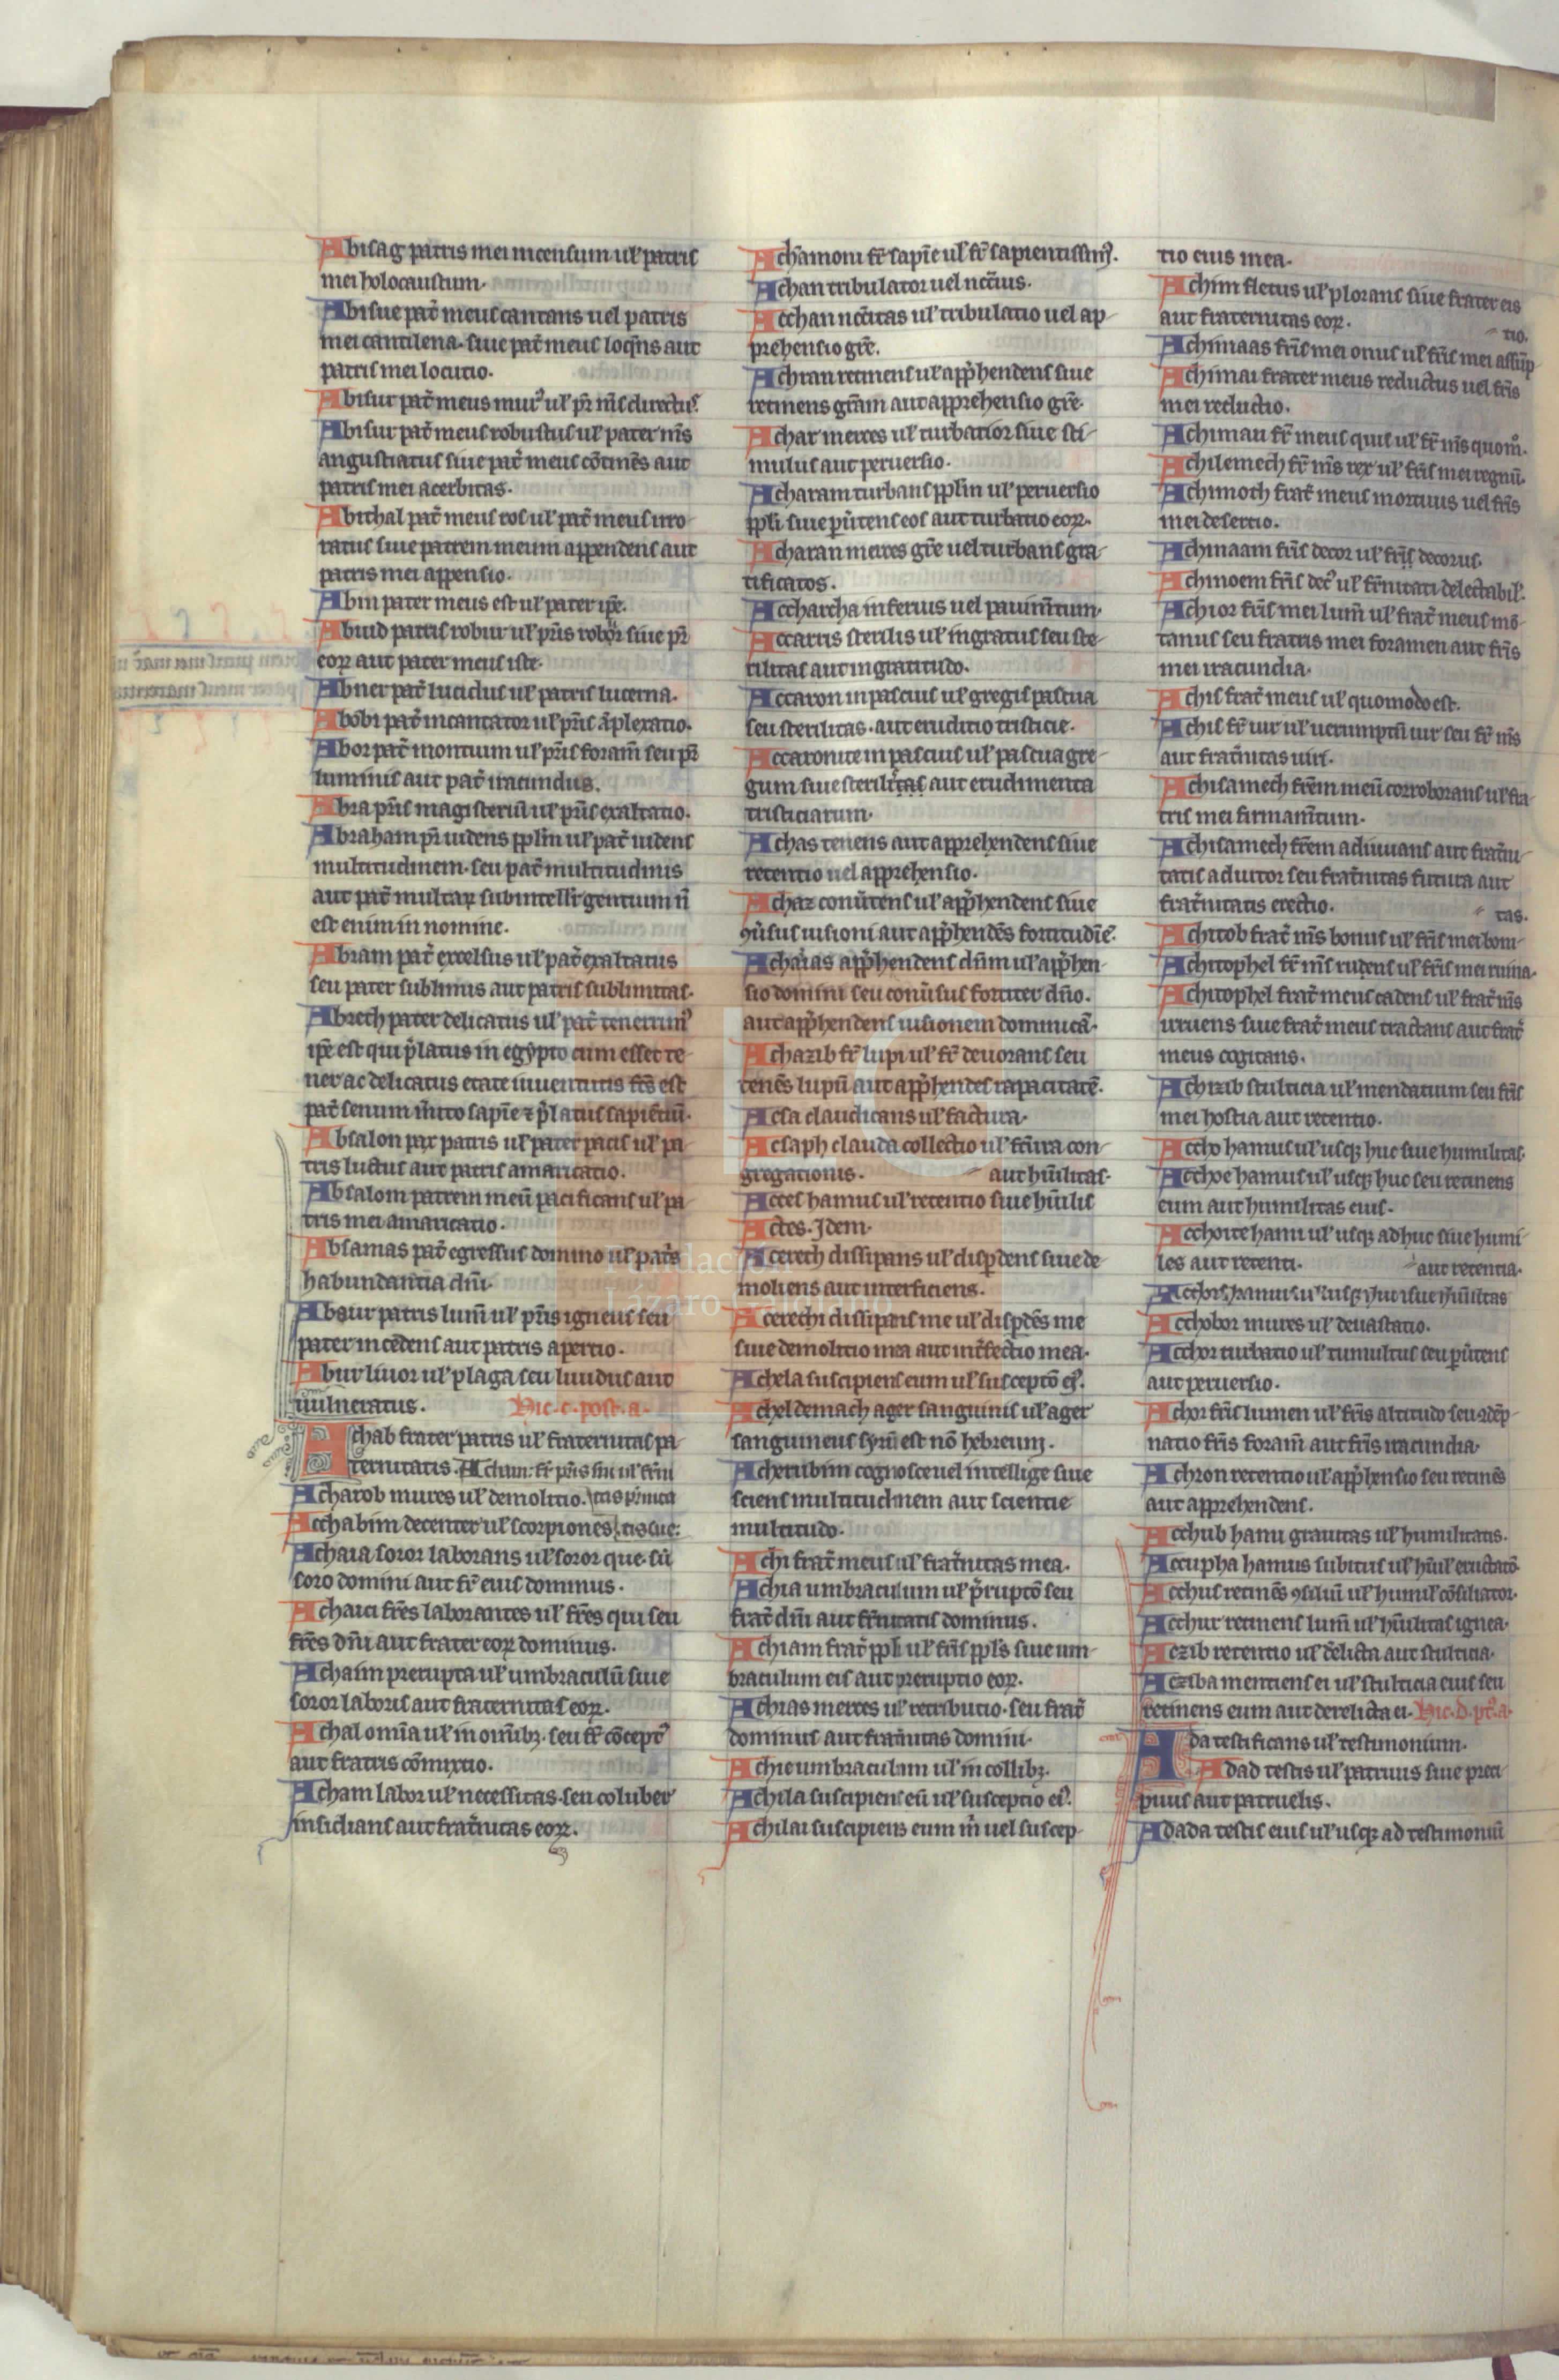 Abisag patris mei incensum ul' patris
mei holocaustum.
Abisue pat̃ meus cantans uel patris
mei cantilena. siue pat̃ meus loq̃ns aut
patris mei locutio.
Abisur pat̃ meus murꝰ ul' pr̃ m̃s directuꝰ.
Abisur pat̃ meus robustus ul' pater m̃s
angustiatus siue pat̃ meus cõtinẽs aut
patris mei acerbitas.
Abithal pat̃ meus ros ul' pat̃ meus irro
ratus siue patrem meum appendens aut
patris mei appensio.
Abiu pater meus est ul' pater ip̃e.
Abiud patris robur ul' pr̃is robor siue pr̃
eoꝝ aut pater meus iste.
Abner pat̃ lucidus ul' patris lucerna.
Abobi pat̃ incantator ul' pr̃is ãplexatio.
Abor pat̃ montium ul' pr̃is foram̃ seu pr̃
luminis aut pat̃ iracundus.
Abra pr̃is magisteriũ ul' pr̃is exaltatio.
Abraham pr̃ uidens ppl̃m ul' pat̃ uidens
multitudinem. seu pat̃ multitudinis
aut pat̃ multaꝝ subintell'r gentium ñ
est enim in nomine.
Abram pat̃ excelsus ul' pat̃ exaltatus
seu pater sublimis aut patris sublimitas.
Abrech pater delicatus ul' pat̃ tenerrimꝰ
ip̃e est qui p̃latus in egypto cum esset te
ner ac delicatus etate iuuentutis fc̃s est
pat̃ senum m̃ito sapiẽ ⁊ p̃latus sapiẽtiũ.
Absalon pax patris ul' pater pacis ul' pa
tris luctus aut patris amaricatio.
Absalom patrem meũ pacificans ul' pa
tris mei amaricatio.
Absamas pat̃ egressus domino ul' pat̃s
habundantia dñi.
Absur patris lum̃ ul' pr̃is igneus seu
pater incedens aut patris apertio.
Abur liuor ul' plaga seu liuidus aut
uulneratus. Hic. c. post. a.
Achab frater patris ul' fraternitas pa
ternitatis. Acham: fr̃ pr̃is sui ul' fr̃ni
Acharob mures ul' demolitio. tas pr̃nita
Acchabim decenter ul' scorpiones. tis sue:
Achaia soror laborans ul' soror que. sũ
soro domini aut fr̃ eius dominus.
Achaici fr̃es laborantes ul' fr̃es qui seu
fr̃es dñi aut frater eoꝝ dominus.
Achaim prerupta ul' umbraculũ siue
soror laboris aut fraternitas eoꝝ.
Achal om̃ia ul' in om̃ibꝫ. seu fr̃ cõceptꝰ
aut fratris cõmixtio.
Acham labor ul' necessitas. seu coluber
insidians aut frat̃nitas eoꝝ.
Achamoni fr̃ sapiẽ ul' fr̃ sapientissimꝰ.
Achan tribulator uel nc̃c̃ius.
Acchan nc̃c̃itas ul' tribulatio uel ap
prehensio gr̃e.
Achran retinens ul' app̃hendens siue
retinens gr̃am aut apprehensio gr̃e.
Achar merces ul' turbatior siue sti
mulus aut peruersio.
Acharam turbans ppl̃m ul' peruersio
ppl̃i siue puertens eos aut turbatio eoꝝ.
Acharan merces gr̃e uel turbans gra
tificatos.
Accharcha inferius uel pauim̃tum.
Accaris sterilis ul' ingratus seu ste
rilitas aut ingratitudo.
Accaron in pascuis ul' gregis pascua
seu sterilitas. aut eruditio tristicie.
Accaronite in pascuis ul' pascua gre
gum siue sterilitas aut erudimenta
tristiciarum.
Achas tenens aut apprehendens siue
retentio uel apprehensio.
Achaz conũtens ul' app̃hendens siue
ꝯũsus uisioni aut app̃hendẽs fortitudiẽ.
Achaias app̃hendens dñm ul' app̃hen
sio domini seu conũsus fortiter dño.
aut app̃hendens uisionem dominicã.
Achazib fr̃ lupi ul' fr̃ deuorans seu
tenẽs lupũ aut app̃hendes rapacitatẽ.
Acsa claudicans ul' factura.
Acsaph clauda collectio ul' fr̃ura con
gregationis. aut hũilitas.
Acces hamus ul' retentio siue hũilis
Actes. Idem.
Acerech dissipans ul' disp̃dens siue de
moliens aut interficiens.
Acerechi dissipans me ul' disp̃dẽs me
siue demolitio mea aut int̃fectio mea.
Achela suscipiens eum ul' susceptõ eiꝰ.
Acheldemach ager sanguinis ul' ager
sanguineus syrũ est nõ hebreum.
Acherubim cognosce uel intellige siue
sciens multitudinem aut scientie
multitudo.
Achi frat̃ meus ul' frat̃nitas mea.
Achia umbraculum ul' p̃ruptõ seu
frat̃ dñi aut fr̃nitatis dominus.
Achiam frat̃ ppl̃i ul' fr̃is ppl's siue um
braculum eis aut preruptio eoꝝ.
Achias merces ul' retributio. seu frat̃
dominus aut frat̃nitas domini.
Achie umbraculum ul' in collibꝫ.
Achila suscipiens eũ ul' susceptio eiꝰ.
Achilai suscipiens eum m̃ uel suscep
tio eius mea.
Achim fletus ul' plorans siue frater eis
aut fraternitas eoꝝ. tio.
Achimaas fr̃is mei onus ul' fr̃is mei assũp
Achimai frater meus reductus uel fr̃is
mei reductio.
Achiman fr̃ meus quis ul' fr̃ m̃s quomꝰ.
Achilemech fr̃ m̃s rex ul' fr̃is mei regnũ.
Achimoth frat̃ meus mortuus uel fr̃is
mei desertio.
Achinaam fr̃is decor ul' fr̃is decorus.
Achinoem fr̃is decꝰ ul' fr̃nitati delectabil'.
Achior fr̃is mei lum̃ ul' frat̃ meus mõ
tanus seu fratris mei foramen aut fr̃is
mei iracundia.
Achis frat̃ meus ul' quomodo est.
Achis fr̃ uir ul' uerumptñ uir seu fr̃ m̃s
aut frat̃nitas uiri.
Achisamech fr̃em meũ corroborans ul' fra
tris mei firmam̃tum.
Achisamech fr̃em adiuuans aut frat̃ni
tatis adiutor seu frat̃nitas futura aut
frat̃nitatis erectio. tas.
Achitob frat̃ m̃s bonus ul' fr̃is mei boni
Achitophel fr̃ m̃s rudens ul' fr̃is mei ruina.
Achitophel frat̃ meus cadens ul' frat̃ m̃s
irruens siue frat̃ meus tractans aut frat̃
meus cogitans.
Achizib stulticia ul' mendatium seu fr̃is
mei hostia aut retentio.
Accho hamus ul' usqꝫ huc siue humilitas.
Acchoe hamus ul' usqꝫ huc seu retinens
eum aut humilitas eius.
Acchoite hami ul' usqꝫ adhuc siue humi
les aut retenti. aut retentia.
Acchobor mures ul' deuastatio.
Acchor turbatio ul' tumultus seu pũtens
aut peruersio.
Achor fr̃is lumen ul' fr̃is altitudo seu ꝯdẽp
natio fr̃is foram̃ aut fr̃is iracundia.
Achron retentio ul' app̃hensio seu retinẽs
aut apprehendens.
Acchub hami grauitas ul' humilitatis.
Accupha hamus subitus ul' hũil' eructatõ.
Acchus retinẽs ꝯsiliũ ul' humil' cõsiliator.
Acchur retinens lum̃ ul' hũilitas ignea.
Aczib retentio ul' d̃elicta aut stulticia.
Aczba mentiens ei ul' stulticia eius seu
retinens eum aut derelicta ei. Hic. d. ptꝰ. a.
Ada testificans ul' testimonium.
Adad testis ul' patruus siue preci
puus aut patruelis.
Adada testis eius ul' usqꝫ ad testimoniũ
Fundación
Lázaro Galdiano